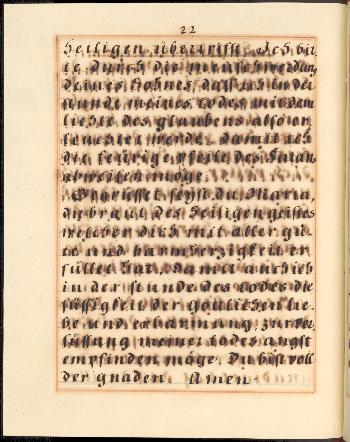 22
heiligen übertrifft. Ich bit-
te durch die menschwerdung
deines Sohnes, daß ich in der
stunde meines todes mit dem
liechte des glaubens also er-
leuchtet werde, damit ich
die feürige pfeile des Satan
abweisen möge.
Gegrüsset seÿst du, Maria,
du braut des heiligen geistes
welcher dich mit aller gü-
te und barmherzigkeit er-
füllet hat, damit auch ich
in der stunde des todes die
süssigkeit der göttlichen lie-
be und erbarmung zur ver-
süssung meiner todes angst
empfinden möge. Du bist voll
der gnaden. Amen.